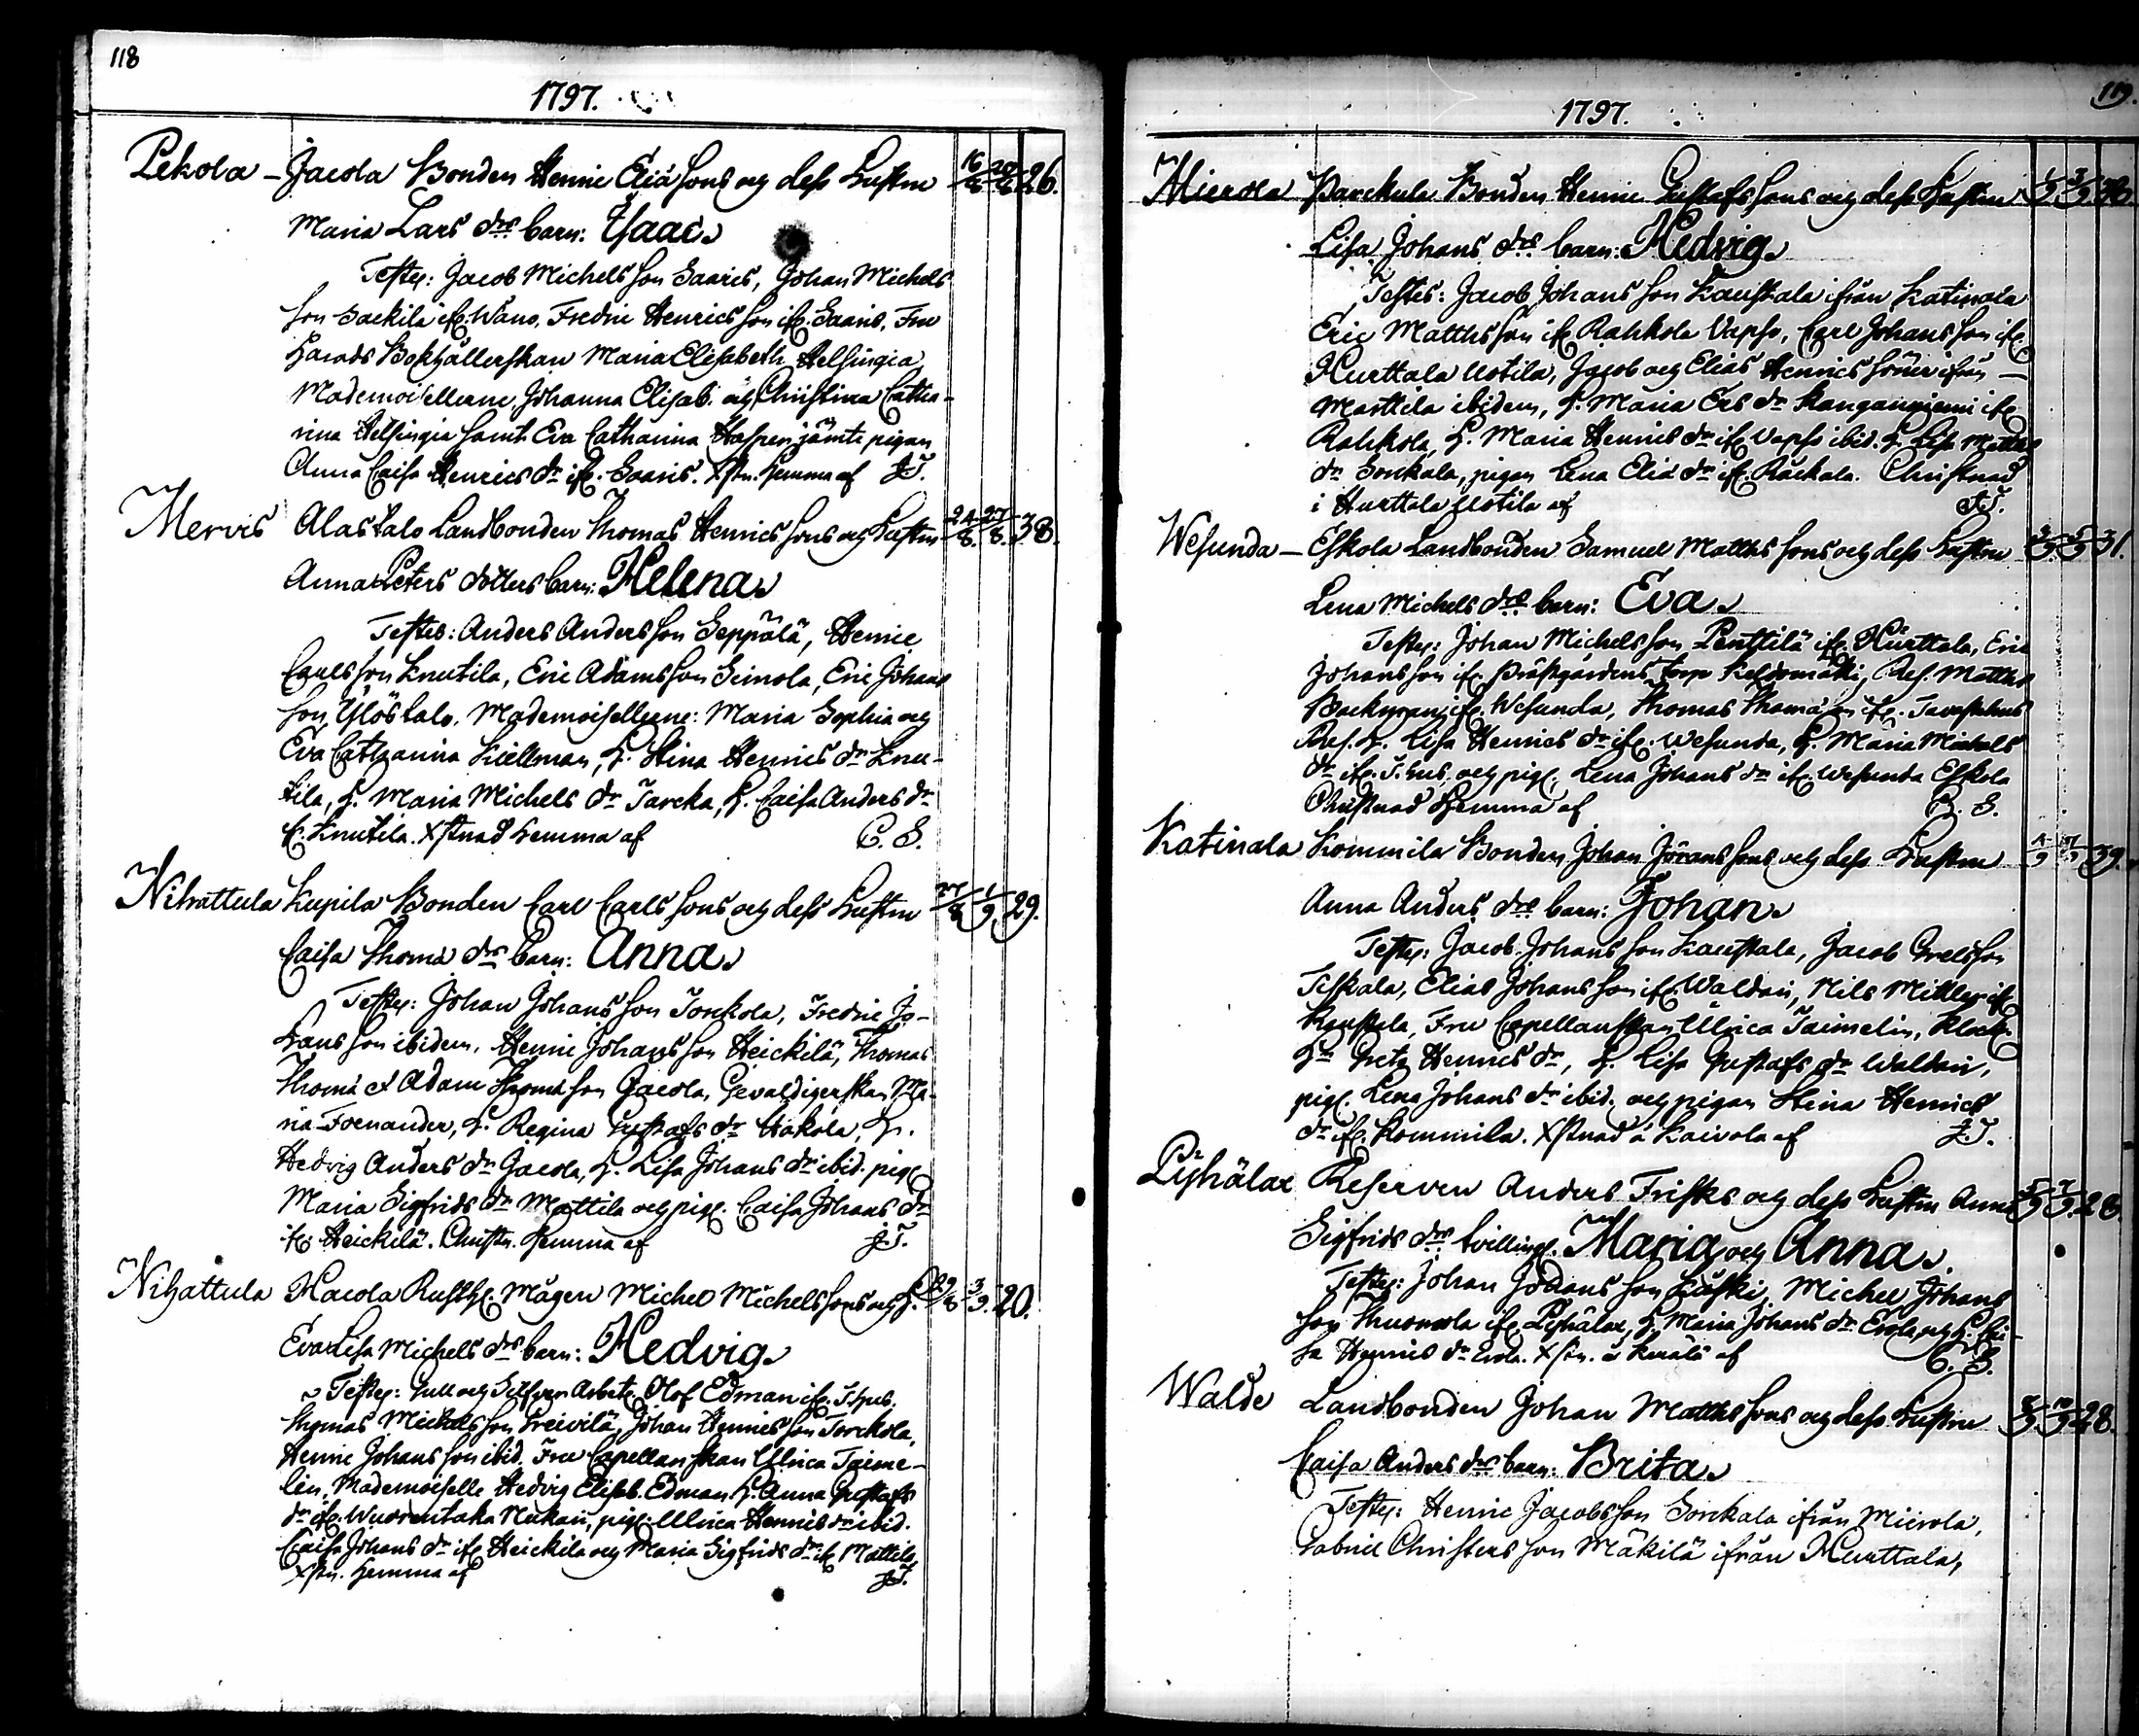 118
1797.
Pekola - Jacola Bonden Henric Eliæ sons och dess hustru 16/8 20/8 26.
Maria Lars drs barn: Isaac.
Testes: Jacob Michels son Saaris, Johan Michels
son Sackila if. Wäno, Fredric Henrics son if. Saaris, Fru
Härads Bokhållerskan Maria Elisabeth Helsingia
Mademoisellerne Johanna Elisab. och Christina Catha-
rina Helsingia samt Eva Catharina jämte pigan
Anna Caisa Henrics dr if. Saaris. Xstn. hemma af J.T.
Mervis Alastalo Landbonden Thomas Henrics sons och hustru 24/8. 27/8. 38.
Anna Peters dotters barn: Helena.
Testes: Anders Anders son Seppälä, Henric
Carls son Knutila, Eric Adams son Simola, Eric Johans
son Ylöstalo. Mademoisellerne: Maria Sophia och
Eva Catharina Kiellman, h. Stina Henrics dr Knu-
tila, h. Maria Michels dr Jarcka, h. Caisa Anders dr
if. Knutila. Xstnad hemma af C. S.
Nihattula Kupila Bonden Carl Carls sons och dess hustru 27/8 1/9 29.
Caisa Thomæ drs barn: Anna.
Testes: Johan Johans son Torckola, Fredric Jo-
hans son ibidem, Henric Johans son Heickilä, Thomas
Thomæ et Adam Thomæ son Jacola, Gevaldigerskan Ma-
ria Fornander, h. Regina Gustafs dr Hakola, h.
Hedvig Anders dr Jacola, h. Lisa Johans dr ibid. pig.
Maria Sigfrids dr Mattila och pig. Caisa Johans dr
if. Heickilä. Christn. hemma af J.T.
Nihattula Hacola Rusth. Mågen Michel Michels sons och h. 29/8 3/9. 20.
Eva Lisa Michels drs barn: Hedvig.
Testes: Gull och Silfver Arbet. Olof Edman if. T.hus.
Thomas Michels son Preivilä, Johan Henrics son Torckola,
Henric Johans son ibid. Fru Capellanskan Ulrica Taime-
lin, Mademoiselle Hedvig Elisab. Edman, h. Anna Gustafs
dr if. Wuorentaka Nukari, pig. Ulrica Henrics dr ibid.
Caisa Johans dr if. Heickilä och Maria Sigfrids dr if. Mattila
Xstn. hemma af J.T.
119.
1797.
Mierola Parckula Bonden Henric Gustafs sons och dess hustru 1/9 3/9
Lisa Johans drs barn: Hedvig.
Testes: Jacob Johans son Kauppala ifrån Katinala
Eric Matths son if. Rahkola Uapso, Carl Johans son if.
Hurttala Uotila, Jacob och Elias Henrics söner ifrån
Marttila ibidem, h. Maria Ers dr Kanganniemi if.
Rahkola, h. Maria Henrics dr if. Uapso ibid. h. Lisa Matths
dr Sorckala, pigan Lena Eliæ dr if. Räckala. Christnad
i Hurttala Uotila af J.T.
Wesunda - Eskola Landbonden Samuel Matths sons och dess hustru 3/9. 5/9 31.
Lena Michels drs barn: Eva.
Testes: Johan Michels son Penttilä if. Hurttala, Eric
Johans son if. Prästgårdens torp, Res. Matths
if. Wesunda, Thomas Thomæ son if. Tavastehus
h. Lisa Henrics dr if. Wesunda, h. Maria Michels
dr if. T.hus. och pig. Lena Johans dr if. Wesunda Eskola
Christnad hemma af C. S.
Katinala Kommila Bonden Johan Jörans sons och dess hustru 4/9 39.
Anna Anders drs barn: Johan.
Testes: Jacob Johans son Kauppala, Jacob Grels son
Teskala, Elias Johans son if. Waldari, Nils Miller if.
Fru Capellanskan Ulrica Taimelin, Klock.
h. Greta Henrics dr, h. Lisa Gustafs dr Waldari,
pig. Lena Johans dr ibid. och pigan Stina Henrics
dr if. Kommila. Xstnad å Kaivola af J.T.
Lejhälax Reserven Anders Frisks och dess hustru Anna 5/9 7/9. 28.
Sigfrids drs tvilling. Maria och Anna.
Testes: Johan Johans son Kåski, Michel Johans
son Thuomola if. Lejhälax, h. Maria Johans dr Erola och h. Cai-
sa Henrics dr Erola. Xstn. å Kerälä af C. S.
Walde Landbonden Johan Matths sons och dess hustru 8/9 10/9 28.
Caisa Anders drs barn: Brita.
Testes: Henric Jacobs son Sorckala ifrån Mierola,
Gabriel Christers son Mäkilä ifrån Hurttala,